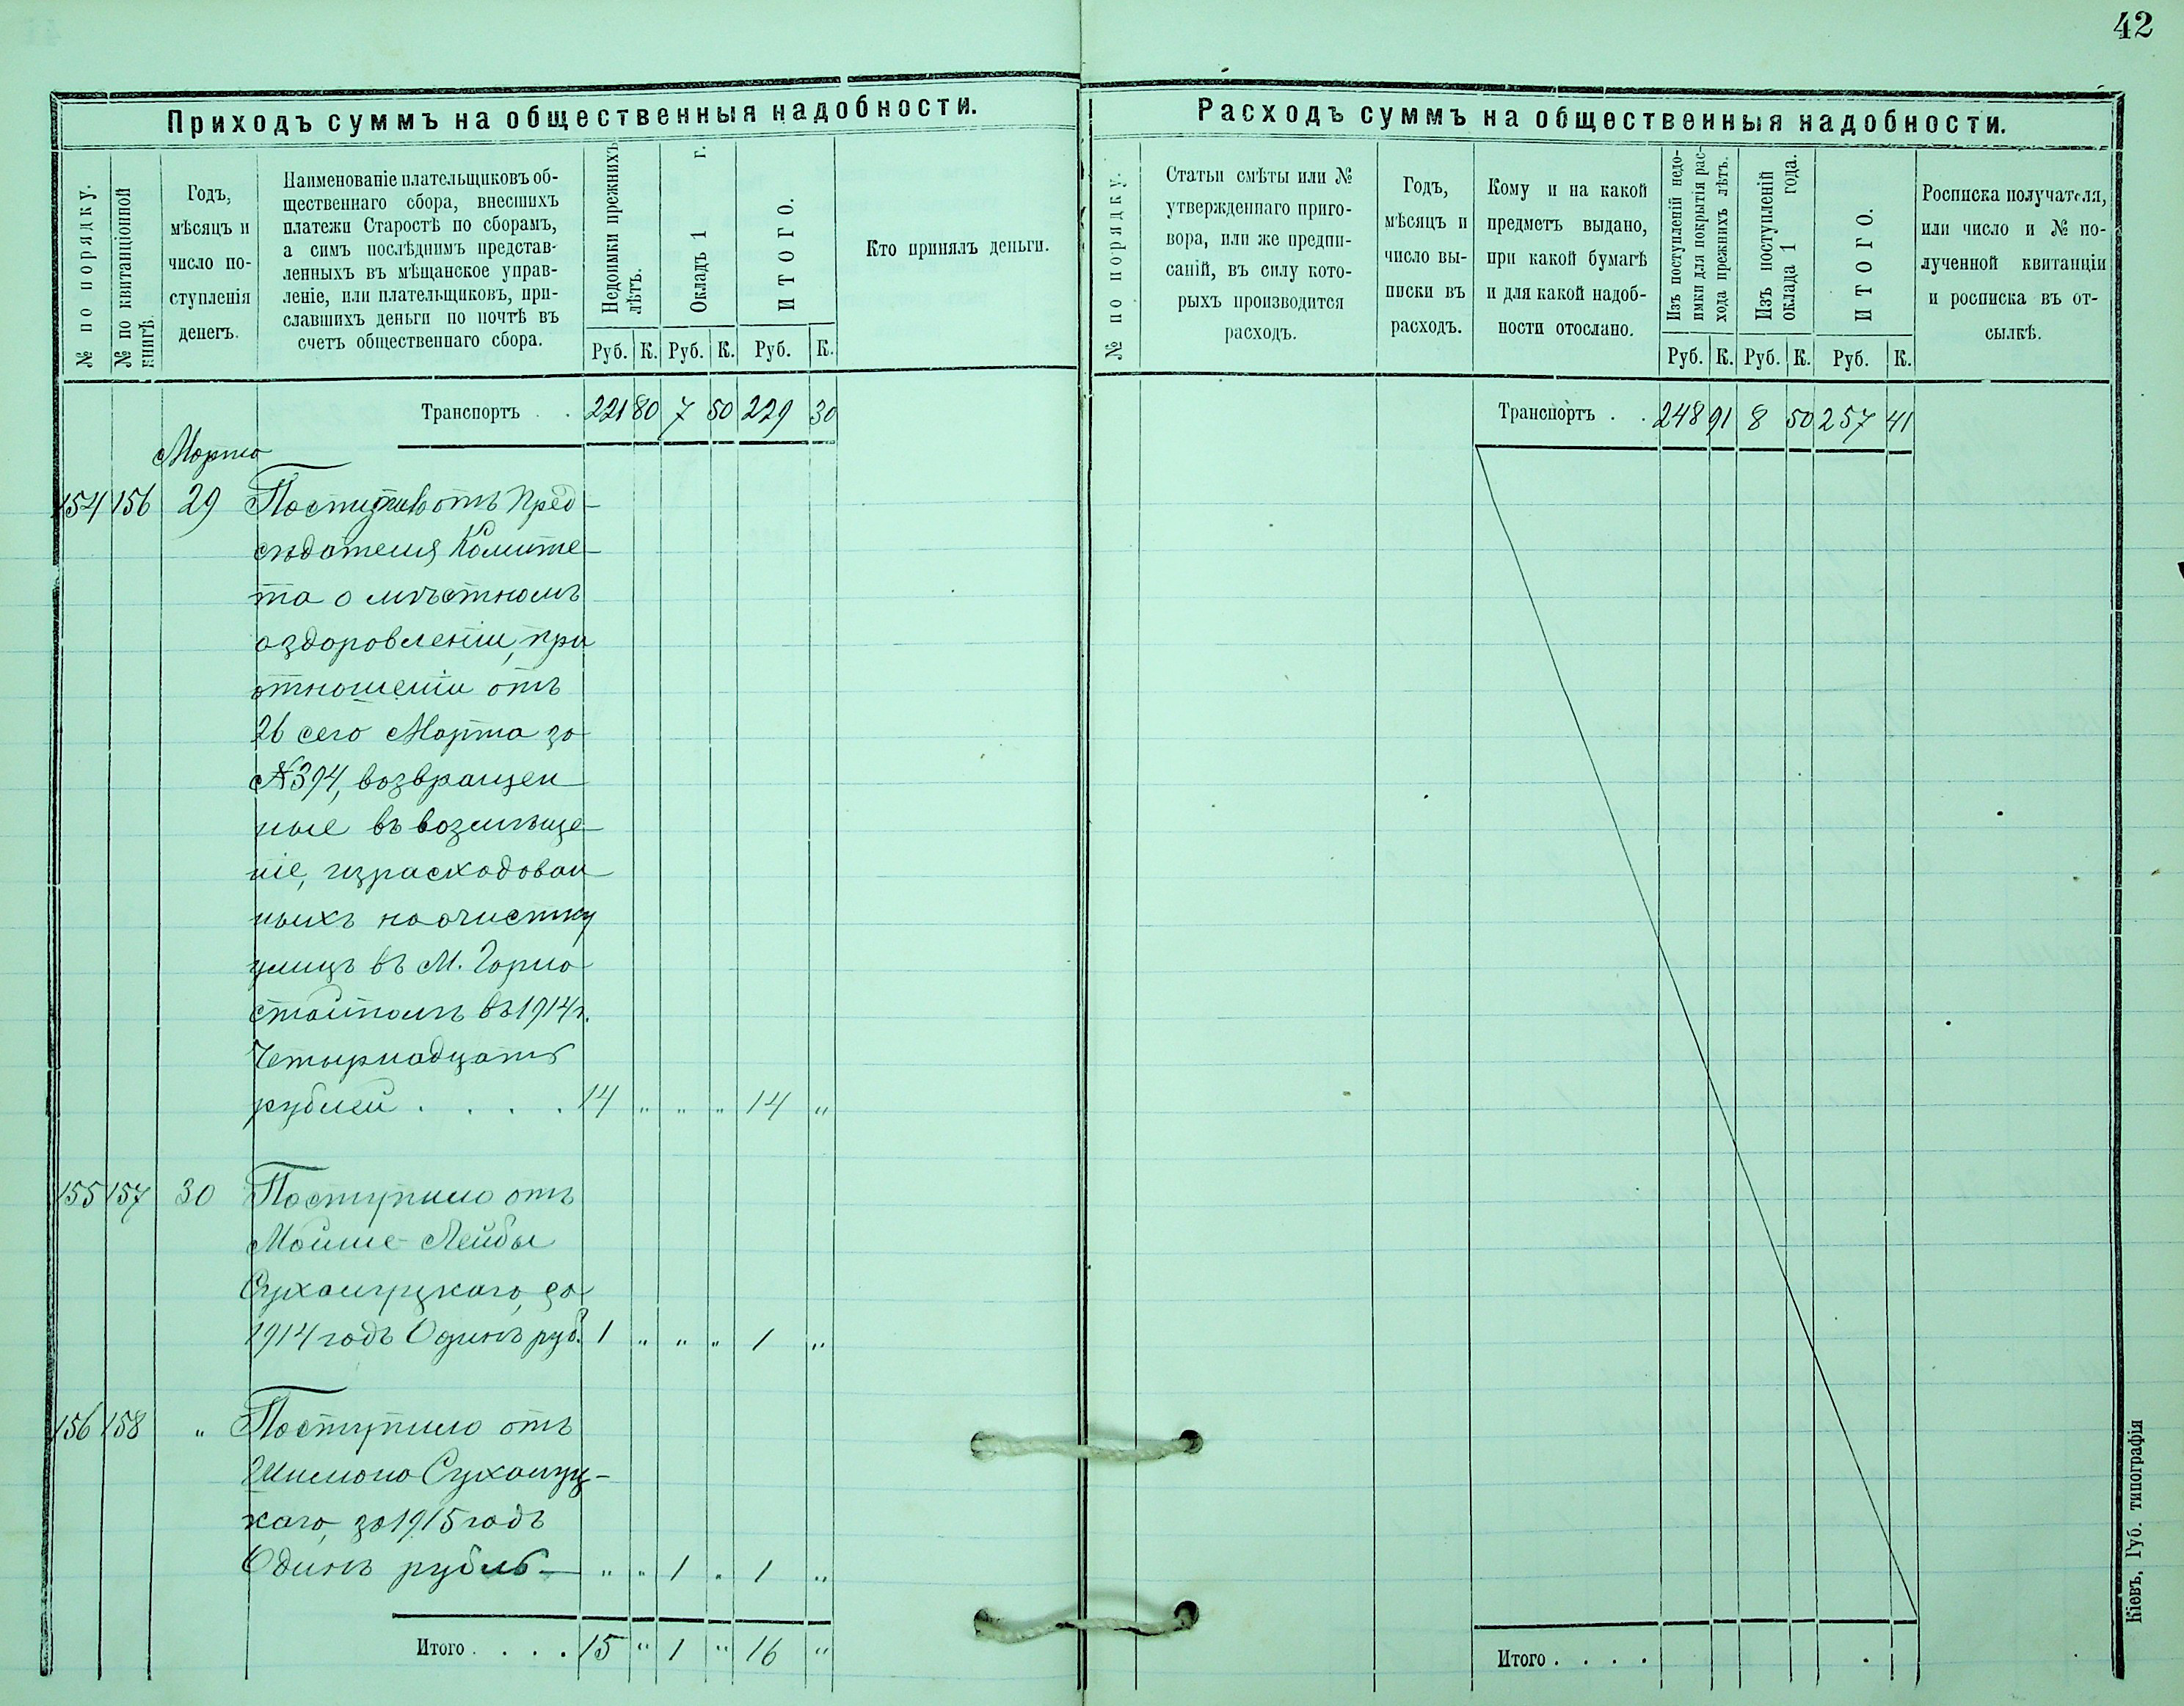 42
Приходъ суммъ на общественныя надобности.
№ по порядку.
№ по квитанціонной книгѣ.
Годъ,
мѣсяцъ и
число по-
ступленія
денегъ.
Наименованіе плательщиковъ об-
щественнаго сбора, внесшихъ
платежи Старостѣ по сборамъ,
а симъ послѣднимъ представ-
ленныхъ въ мѣщанское управ-
леніе, или плательщиковъ, при-
славшихъ деньги по почтѣ въ
счетъ общественнаго сбора.
Недоимки прежнихъ
лѣтъ.
Окладъ 1 г.
ИТОГО.
Руб. К. Руб. К. Руб. К.
Кто принялъ деньги.
Транспортъ . . 221 80 7 50 229 30
Марта
154 156 29 Поступило отъ Пред-
сѣдателя Комите-
та о мѣстномъ
оздоровленіи, при
отношеніи отъ
26 сего Марта за
№ 394, возвращен-
ные въ возмѣще-
ніе, израсходован-
ныхъ на очистку
улицъ въ М. Горно-
стайполѣ въ 1914 г.
Четырнадцать
рублей . . . . 14 " " " 14 "
155 157 30 Поступило отъ
Мойше-Лейбы
Сухолуцкаго, за
1914 годъ Одинъ руб. 1 " " " 1 "
156 158 " Поступило отъ
Шлемы Сухолуц-
каго, за 1915 годъ
Одинъ рубль — " " 1 " 1 "
Итого . . . . 15 " 1 " 16 "
Расходъ суммъ на общественныя надобности.
№ по порядку.
Статьи смѣты или №
утвержденнаго приго-
вора, или же предпи-
саній, въ силу кото-
рыхъ производится
расходъ.
Годъ,
мѣсяцъ и
число вы-
писки въ
расходъ.
Кому и на какой
предметъ выдано,
при какой бумагѣ
и для какой надоб-
ности отослано.
Изъ поступленій недо-
имки для покрытія рас-
хода прежнихъ лѣтъ.
Изъ поступленій
оклада 1 года.
ИТОГО.
Руб. К. Руб. К. Руб. К.
Росписка получателя,
или число и № по-
лученной квитанціи
и росписка въ от-
сылкѣ.
Транспортъ . . 248 91 8 50 257 41
Итого . . . .
Кіевъ, Губ. типографія